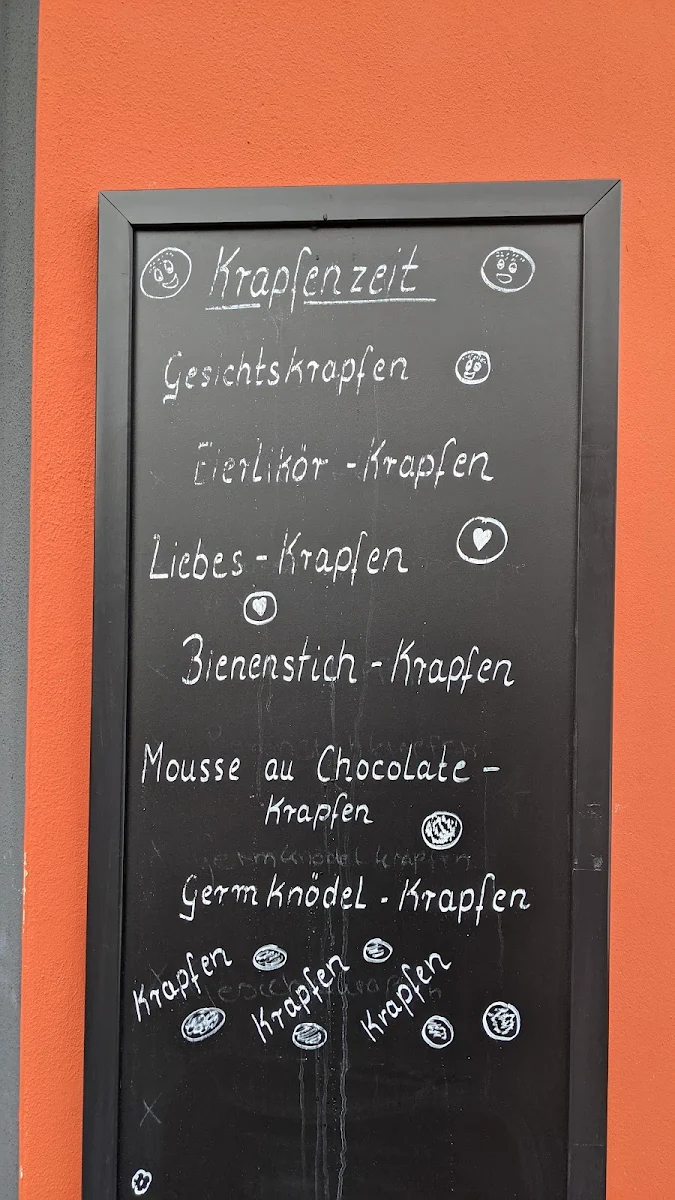 Krapfenzeit
Gesichtskrapfen
Eierlikör - Krapfen
Liebes - Krapfen
Bienenstich - Krapfen
Mousse au Chocolate -
Krapfen
Germknödelkrapfen
Germknödel - Krapfen
Krapfen Krapfen Krapfen
X